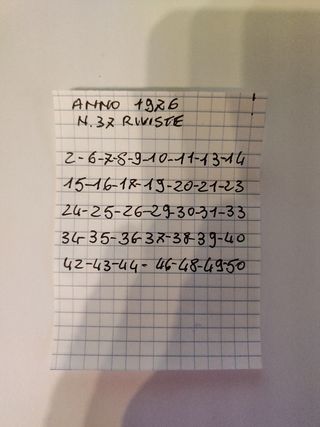 ANNO 1926
N. 37 RIVISTE
2-6-7-8-9-10-11-13-14
15-16-17-19-20-21-23
24-25-26-29-30-31-33
34-35-36-37-38-39-40
42-43-44-46-48-49-50